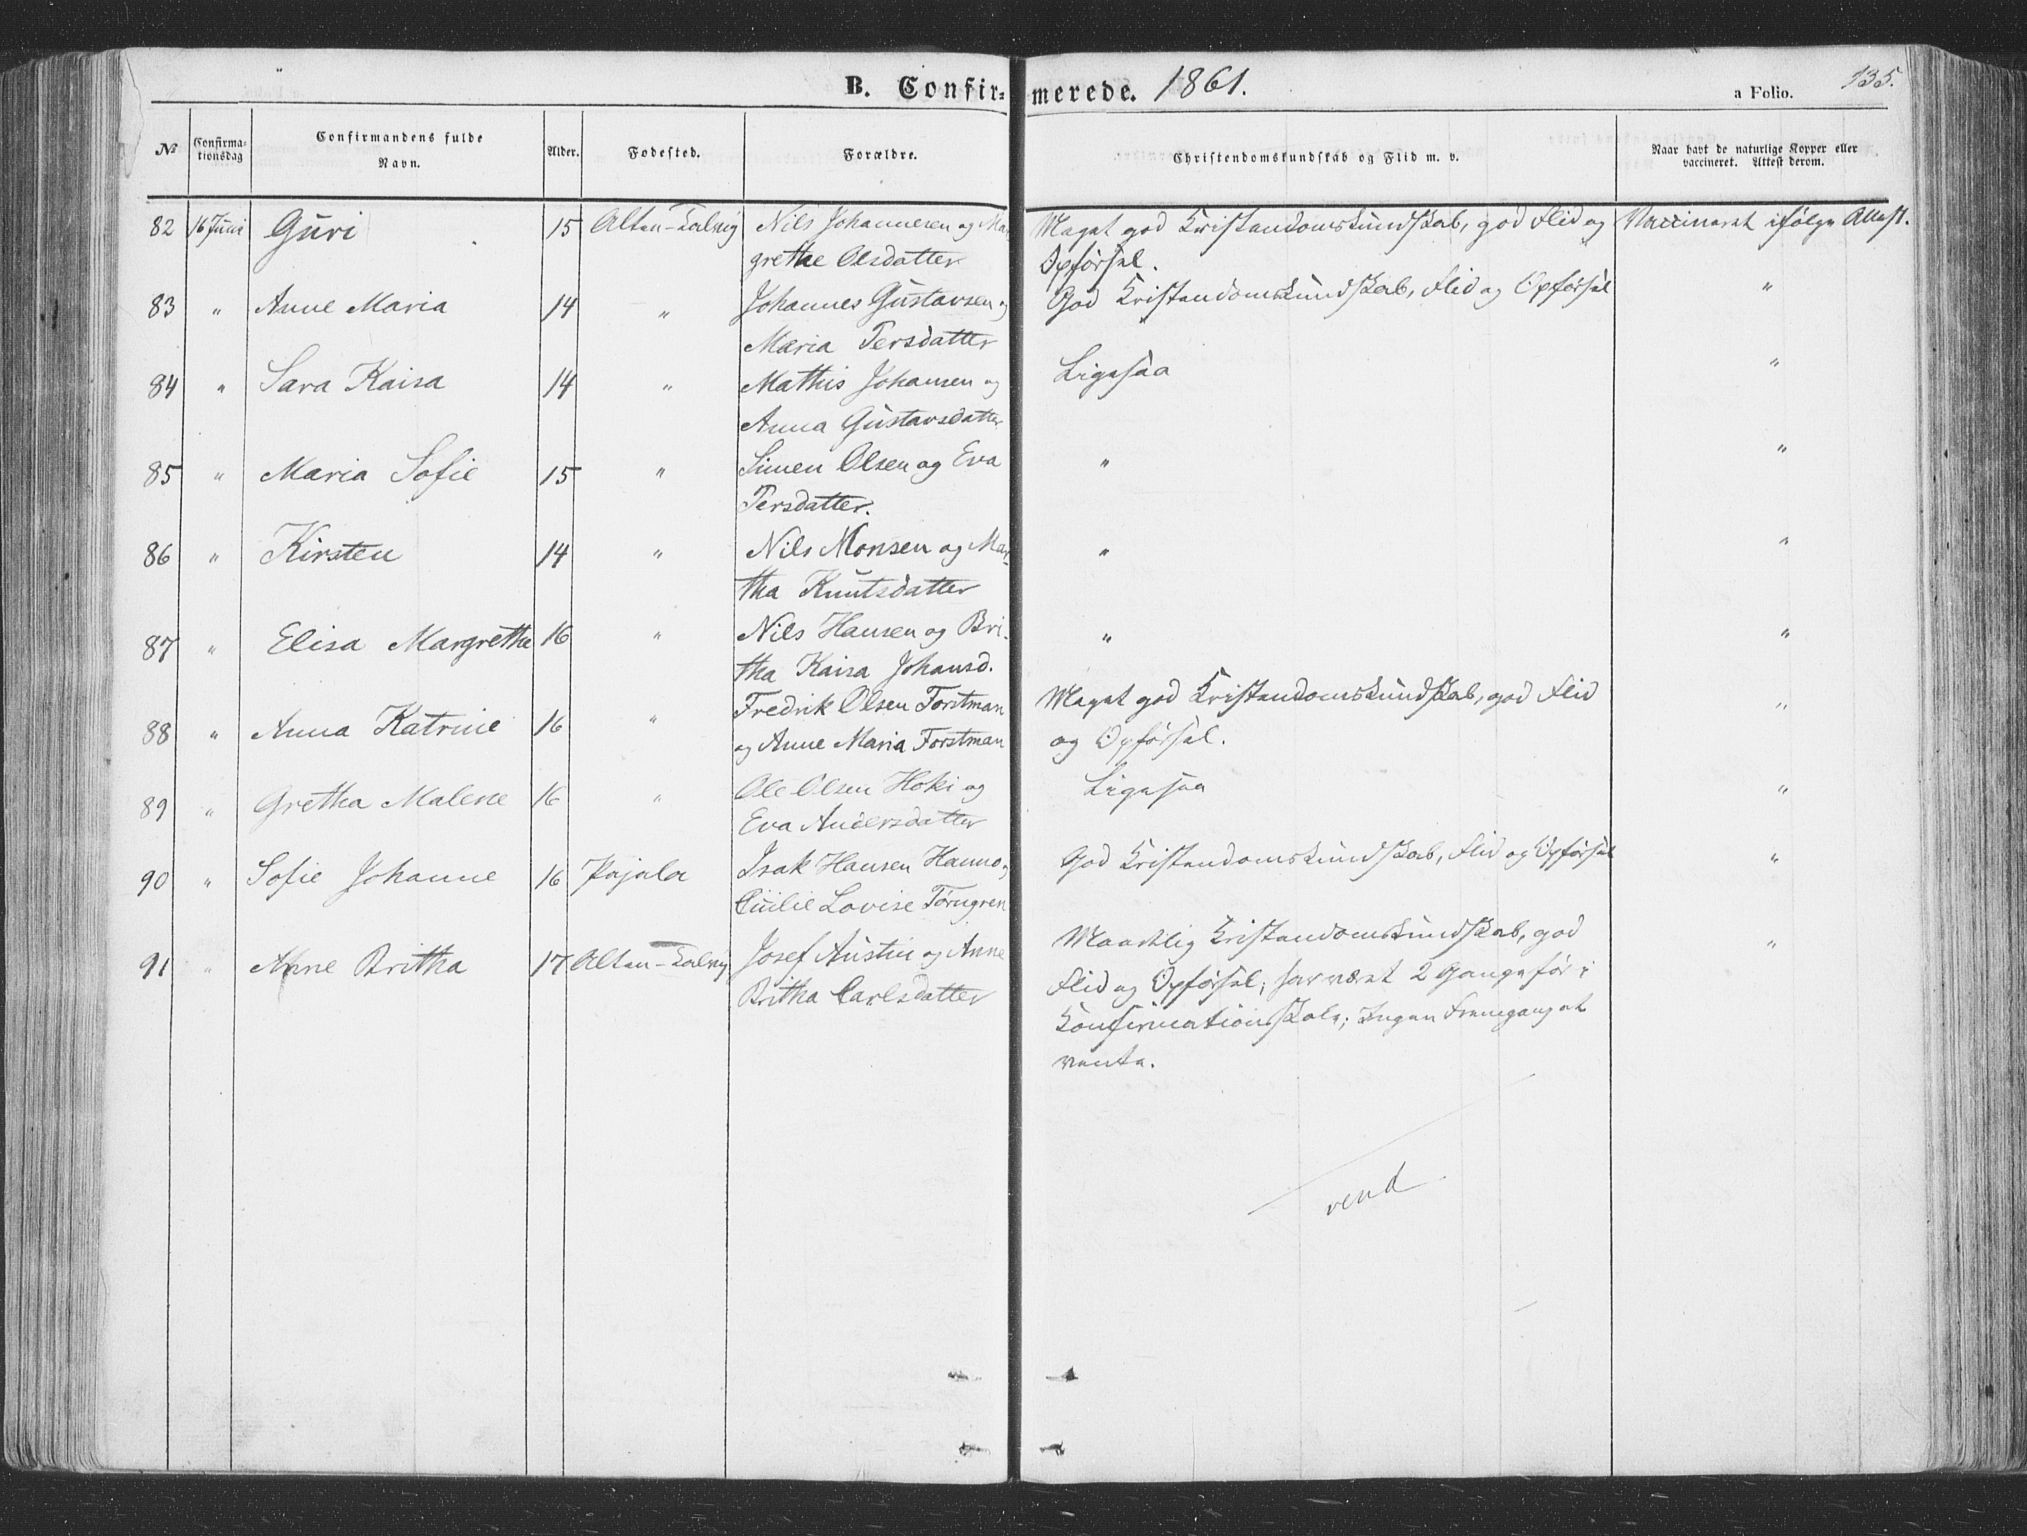 B. Confir- merede. 1861.
a Folio. 135.
№ Confirma-tionsdag Confirmandens fulde Navn. Alder. Fodested. Forældre. Christendomskundskab og Flid m. v. Naar havt de naturlige Kopper eller vaccineret. Attest derom.
82 16 Juni Guri 15 Alten-Talvig Nils Johannesen og Mar Meget god Kristendomskundskab, god Flid og Vaccineret ifølge Attest.
grethe Olsdatter Opførsel.
83 " Anne Maria 14 " Johannes Gustavsen og God Kristendomskundskab, Flid og Opførsel "
Maria Persdatter
84 " Sara Kaisa 14 " Mathis Johansen og Ligesaa "
Anna Gustavsdatter
85 " Maria Sofie 15 " Simen Olsen og Eva " "
Persdatter.
86 " Kirsten 14 " Nils Monsen og Mar- " "
tha Knutsdatter
87 " Elisa Margretha 16 " Nils Hansen og Bri- " "
tha Kaisa Johansd.
88 " Anna Katrine 16 " Fredrik Olsen Forstman Meget god Kristendomskundskab, god Flid "
og Anne Maria Forstman og Opførsel.
89 " Gretha Malene 16 " Ole Olsen Hoki og Ligesaa "
Eva Andersdatter
90 " Sofie Johanne 16 Pajala Isak Hansen Hanno og God Kristendomskundskab, Flid og Opførsel "
Lovise Törngren
91 " Anne Britha 17 Alten-Talvig Josef Austin og Anne Maadelig Kristendomskundskab, god "
Britha Carlsdatter Flid og Opførsel; har været 2 Gange før i
Konfirmationsskole; Ingen Fremgang at
vente.
vend